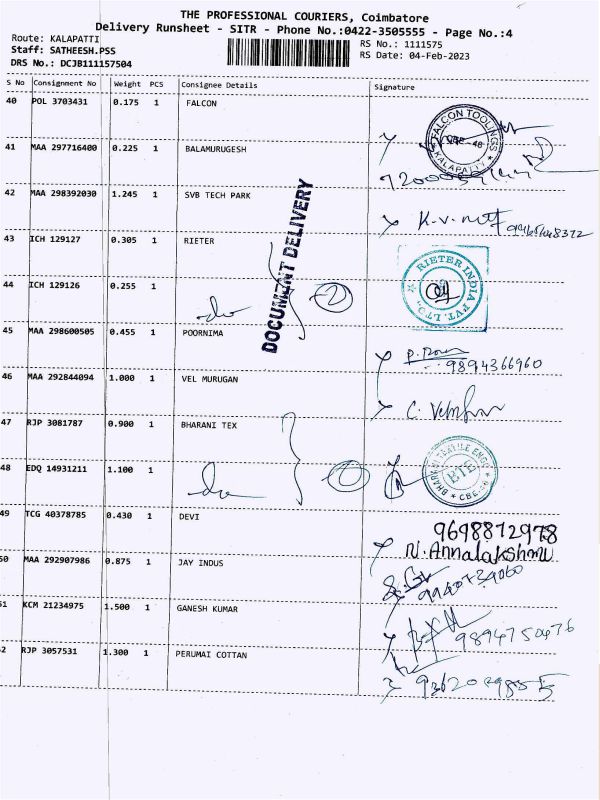 THE PROFESSIONAL COURIERS, Coimbatore
Delivery Runsheet - SITR - Phone No.:0422-3505555 - Page No.:4
Route: KALAPATTI
Staff: SATHEESH.PSS
DRS No.: DCJB111157504
RS No.: 1111575
RS Date: 04-Feb-2023
S No Consignment No Weight PCS Consignee Details Signature
40 POL 3703431 0.175 1 FALCON
FALCON TOOLINGS
KALAPATTY
41 MAA 297716400 0.225 1 BALAMURUGESH
42 MAA 298392030 1.245 1 SVB TECH PARK
DOCUMENT DELIVERY
43 ICH 129127 0.305 1 RIETER
RIETER INDIA PVT. LTD.
44 ICH 129126 0.255 1
45 MAA 298600505 0.455 1 POORNIMA
9894366960
46 MAA 292844094 1.000 1 VEL MURUGAN
47 RJP 3081787 0.900 1 BHARANI TEX
BTE
48 EDQ 14931211 1.100 1
49 TCG 40378785 0.430 1 DEVI
9698812978
N. Annalakshmi
50 MAA 292907986 0.875 1 JAY INDUS
51 KCM 21234975 1.500 1 GANESH KUMAR
9894750476
52 RJP 3057531 1.300 1 PERUMAI COTTAN